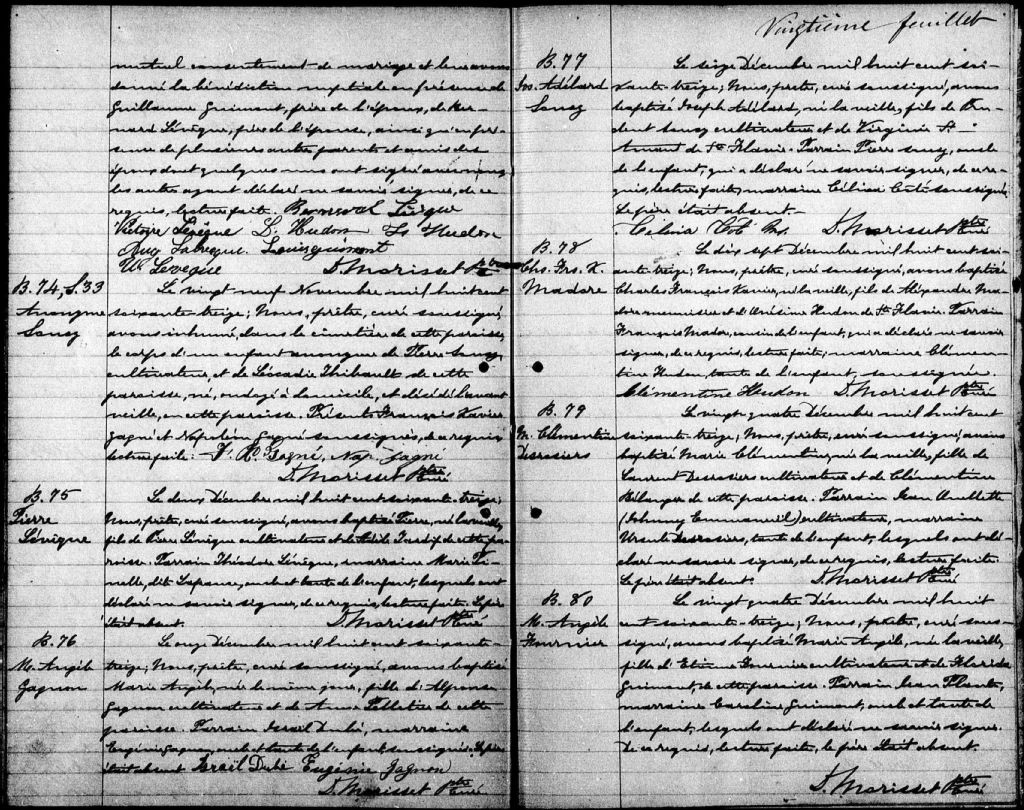 mutuel consentement de mariage et leur avons
donné la bénédiction nuptiale en présence de
Guillaume Guimont, père de l'époux, de Ber-
nard Lévêque, père de l'épouse, ainsi qu'en pré-
sence de plusieurs autres parents et amis des
époux dont quelques uns ont signé avec nous,
les autres ayant déclaré ne savoir signer, de ce
requis, lecture faite.
Victoire Levêque D. Hudon Ls Hudon
Levêque
D. Morisset Ptre
B. 74, S. 33
Anonyme
Soucy
Le vingt neuf Novembre mil huit cent
soixante-treize; Nous, prêtre, curé soussigné
avons inhumé dans le cimetière de cette paroisse,
le corps d'un enfant anonyme de Pierre Soucy
cultivateur, et de Léocadie Thibault de cette
paroisse, né, ondoyé à domicile, et décédé l'avant
veille, en cette paroisse. Présents François Xavier
Gagné et Napoléon Gagné soussignés, de ce requis
lecture faite. F. X. Gagné, Nap. Gagné
D. Morisset Ptre Curé
B. 75
Pierre
Lévêque
Le deux Décembre mil huit cent soixante-treize;
Nous, prêtre, curé soussigné, avons baptisé Pierre, né la veille,
fils de Pierre Lévêque cultivateur et de Adèle Tardif de cette pa-
roisse. Parrain Théodore Lévêque, marraine Marie Pi-
nelle, dit Lafrance, oncle et tante de l'enfant, lesquels ont
déclaré ne savoir signer, de ce requis, lecture faite. Le père
était absent. D. Morisset Ptre Curé
B. 76
M. Angèle
Gagnon
Le onze Décembre mil huit cent soixante-
treize; Nous, prêtre, curé soussigné, avons baptisé
Marie Angèle, née le même jour, fille d'Alphonse
Gagnon cultivateur et de Anna Pelletier de cette
paroisse. Parrain Israël Dubé, marraine
Eugénie Gagnon, oncle et tante de l'enfant soussignés. Le père
était absent Israël Dubé Eugénie Gagnon
D. Morisset Ptre Curé
Vingtième feuillet
B. 77
Jos. Adélard
Soucy
Le seize Décembre mil huit cent soi-
xante-treize; Nous, prêtre, curé soussigné, avons
baptisé Joseph Adélard, né la veille, fils de Pru-
dent Soucy cultivateur et de Virginie St-
Amant de Ste Flavie. Parrain Pierre Soucy, oncle
de l'enfant, qui a déclaré ne savoir signer, de ce re-
quis, lecture faite; marraine Célina Côté soussignée.
Le père était absent.
Celina Coté D. Morisset Ptre Curé
B. 78
Chs. Frs. X.
Madore
Le dix sept Décembre mil huit cent soi-
xante-treize; Nous, prêtre, curé soussigné, avons baptisé
Charles François Xavier, né la veille, fils de Alexandre Ma-
dore menuisier et d'Arsine Hudon de Ste Flavie. Parrain
François Madore, cousin de l'enfant, qui a déclaré ne savoir
signer, de ce requis, lecture faite; marraine Clémen-
tine Hudon, tante de l'enfant, soussignée.
Clémentine Hudon D. Morisset Ptre Curé
B. 79
M. Clémentine
Desrosiers
Le vingt quatre Décembre mil huit cent
soixante-treize; Nous, prêtre, curé soussigné, avons
baptisé Marie Clémentine, née la veille, fille de
Laurent Desrosiers cultivateur et de Clémentine
Bélanger de cette paroisse. Parrain Jean Ouellette
(Johnny Emmanuel) cultivateur, marraine
Ursule Desrosiers, tante de l'enfant, lesquels ont dé-
claré ne savoir signer, de ce requis, lecture faite.
Le père était absent. D. Morisset Ptre Curé
B. 80
M. Angèle
Fournier
Le vingt quatre Décembre mil huit
cent soixante-treize; Nous, prêtre, curé sous-
signé, avons baptisé Marie Angèle, née la veille,
fille d'Etienne Fournier cultivateur et de Florida
Guimont, de cette paroisse. Parrain Jean Plante,
marraine Caroline Guimont, oncle et tante de
l'enfant, lesquels ont déclaré ne savoir signer.
De ce requis, lecture faite, le père était absent.
D. Morisset Ptre Curé